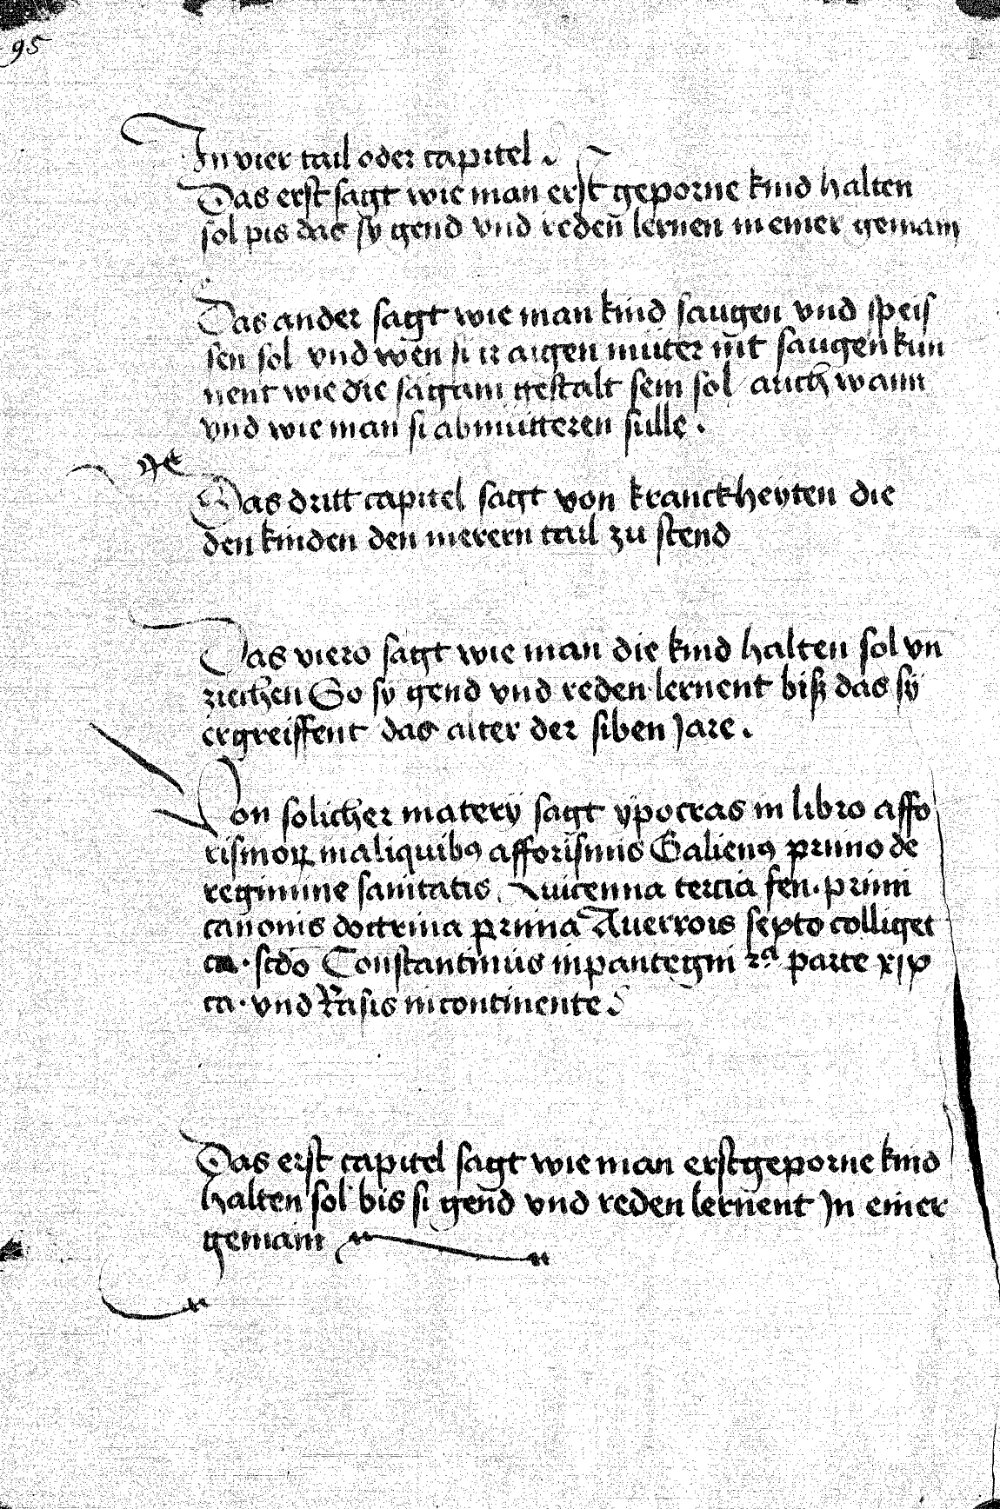 95
In vier tail oder capitel .
Das erst sagt wie man erst geporne kind halten
sol pis das sy gend vnd reden̄ lernen in einer gemain
Das ander sagt wie man kind saugen vnd speis
sen sol vnd wēn si ir aigen muter nit saugen kun
nent wie die sagam gestalt sein sol auch wann
vnd wie man si abmutteren sulle .
Das dritt capitel sagt von kranckheyten die
den kinden den merern tail zu stend
Das vierd sagt wie man die kind halten sol vn
ziechen So sy gend vnd reden lernent bisz das sy
ergreiffent das alter der siben Jare .
Von solicher matery sagt ypocras in libro affo
rismoꝝ in aliquibꝯ afforismis Galienꝯ primo de
regimine sanitatis . Auicenna tercia fen . primi
canonis doctrina prima Auerrois sexto colliget
ca . scdo Constantinus in pantegni parte xix
ca . vnd Rasis in continente .
Das erst capitel sagt wie man erstgeporne kind
halten sol bis si gend vnd reden lernent In einer
gemain